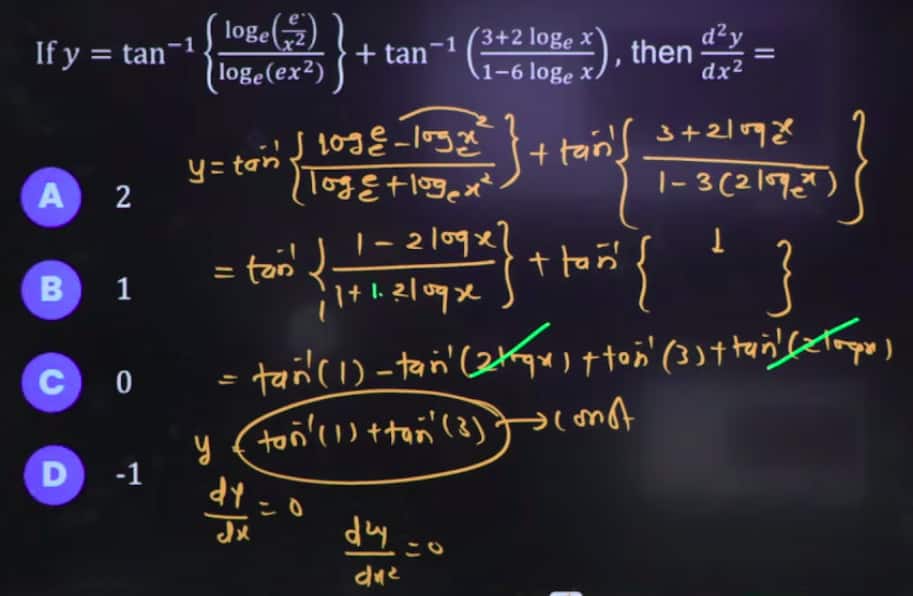 If y = tan⁻¹ { logₑ(e/x²) / logₑ(ex²) } + tan⁻¹ ( 3+2 logₑ x / 1−6 logₑ x ), then d²y/dx² =
y = tan⁻¹ { logₑe − logₑx² / logₑe + logₑx² } + tan⁻¹ { 3+2logₑx / 1−3(2logₑx) }
A 2
= tan⁻¹ { 1−2logx / 1+1.2logx } + tan⁻¹ { ↓ }
B 1
= tan⁻¹(1) − tan⁻¹(2logx) + tan⁻¹(3) + tan⁻¹(2logx)
C 0
y = tan⁻¹(1) + tan⁻¹(3) → const
D -1
dy/dx = 0
d²y/dx² = 0